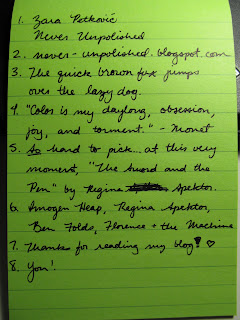 1. Zara Petković
Never Unpolished
2. never-unpolished.blogspot.com
3. The quick brown fox jumps
over the lazy dog.
4. "Color is my daylong, obsession,
joy, and torment." - Monet
5. So hard to pick... at this very
moment, "The Sword and the
Pen" by Regina Spektor.
6. Imogen Heap, Regina Spektor,
Ben Folds, Florence + the Machine
7. Thanks for reading my blog! ♡
8. You!